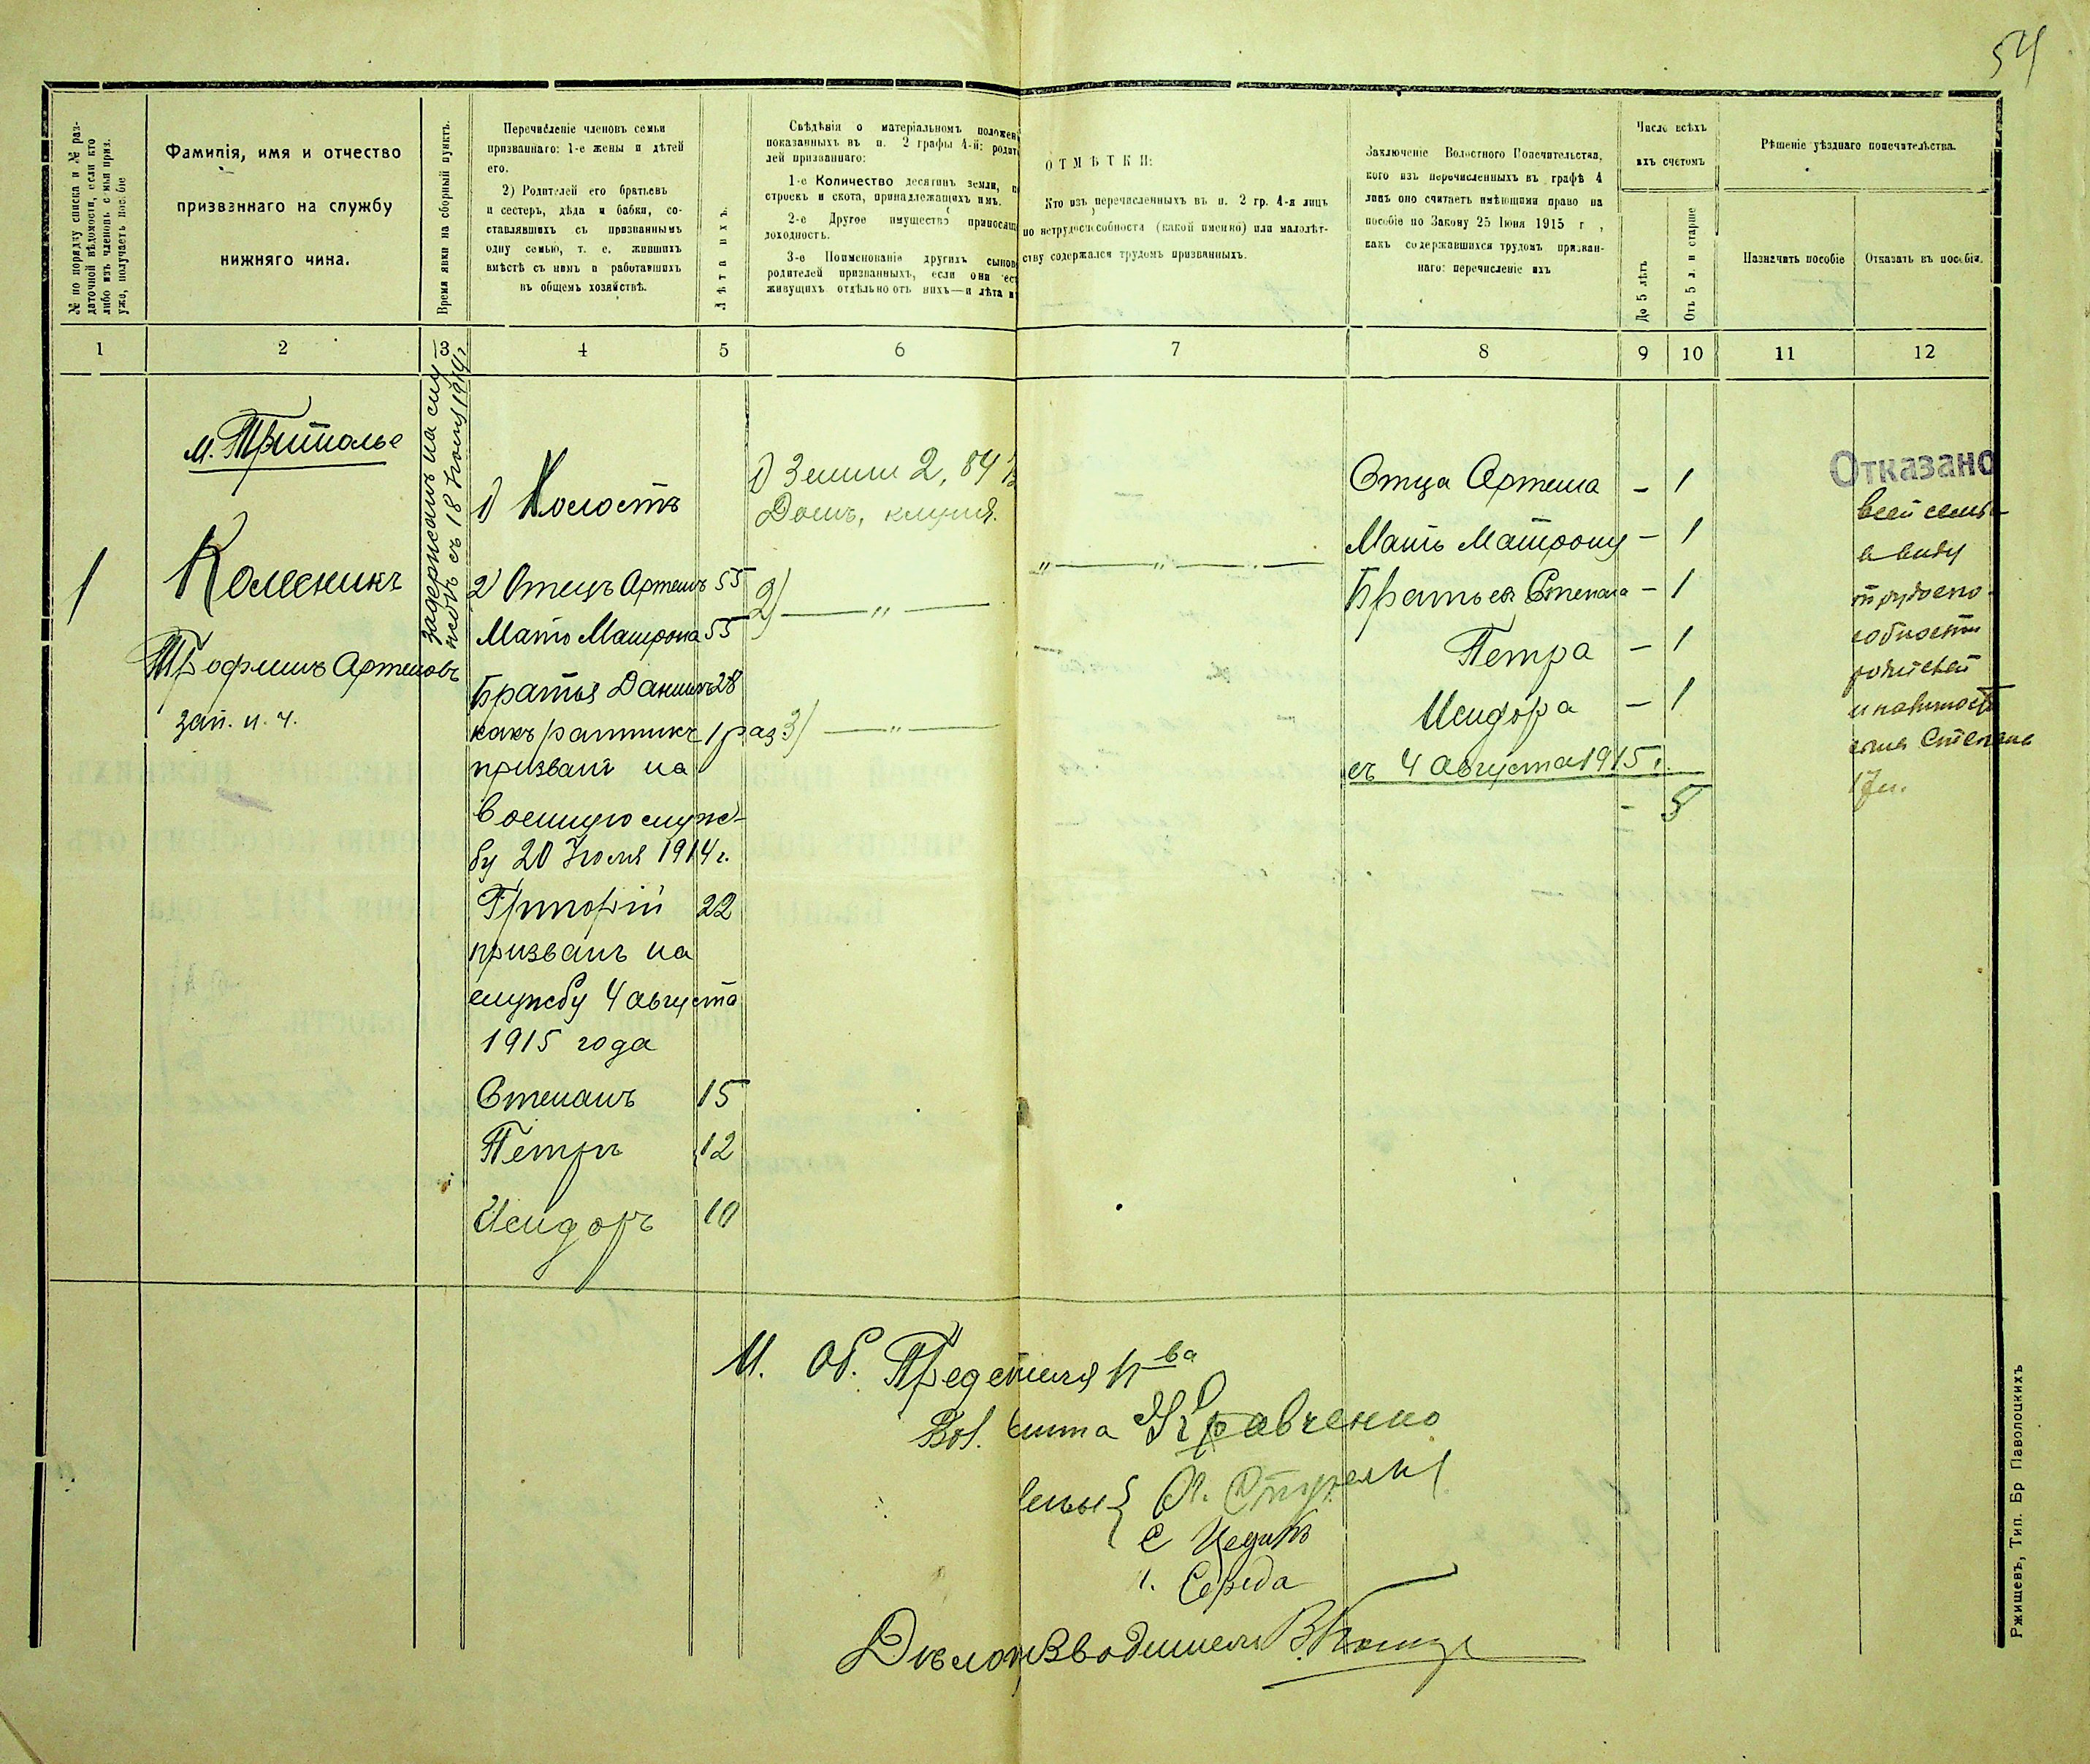 54
№ по порядку списка и № раз-
даточной вѣдомости, если кто
либо изъ членовъ семьи приз.
уже, получаетъ пособіе
Фамилія, имя и отчество
призваннаго на службу
нижняго чина.
Время явки на сборный пунктъ.
Перечисленіе членовъ семьи
призваннаго: 1-е жены и дѣтей
его.
2) Родителей его братьевъ
и сестеръ, дѣда и бабки, со-
ставлявшихъ съ призваннымъ
одну семью, т. е. жившихъ
вмѣстѣ съ нимъ и работавшихъ
въ общемъ хозяйствѣ.
Лѣта ихъ.
Свѣдѣнія о матеріальномъ положен
показанныхъ въ п. 2 графы 4-й: родит
лей призваннаго:
1-е Количество десятинъ земли, п
строекъ и скота, принадлежащихъ имъ.
2-е Другое имущество приносящ
доходность.
3-е Поименованіе другихъ сынов
родителей призванныхъ, если они ест
живущихъ отдѣльно отъ нихъ—и лѣта и
ОТМѢТКИ:
Кто изъ перечисленныхъ въ п. 2 гр. 4-я лицъ
по нетрудоспособности (какой именно) или малолѣт-
ству содержался трудомъ призванныхъ.
Заключеніе Волостного Попечительства,
кого изъ перечисленныхъ въ графѣ 4
лицъ оно считаетъ имѣющими право на
пособіе по Закону 25 Іюня 1915 г ,
какъ содержавшихся трудомъ призван-
наго: перечисленіе ихъ
Число всѣхъ
ихъ счетомъ
До 5 лѣтъ
Отъ 5 л. и старше
Рѣшеніе уѣзднаго попечительства.
Назначить пособіе
Отказать въ пособіи.
1 2 3 4 5 6 7 8 9 10 11 12
м. Триполье
1
Колесникъ
Трофимъ Артемовъ
зап. н. ч.
задержанъ на слу-
жбѣ съ 18 Іюля 1914 г.
1) Холостъ
2) Отецъ Артемъ 55
Мать Матрона 55
Братья Даниилъ 28
какъ ратникъ 1 раз
призванъ на
военную служ-
бу 20 Іюля 1914 г.
Григорій 22
призванъ на
службу 4 августа
1915 года
Степанъ 15
Петръ 12
Исидоръ 10
1) Земли 2,84
Домъ, клуня.
2) — " —
3) — " —
" — " —
Отца Артема – 1
Мать Матрону – 1
Братьевъ Степана – 1
Петра – 1
Исидора – 1
съ 4 августа 1915 г.
– 5
Отказано
всей семьѣ
в виду
трудоспо-
собности
родителей
и наличности
сына Степана
17 л.
И. Об. Предсѣдателя П-ва
Вол. Кравченко
Члены
С
Середа
Дѣлопроизводитель
Ржищевъ, Тип. Бр Паволоцкихъ